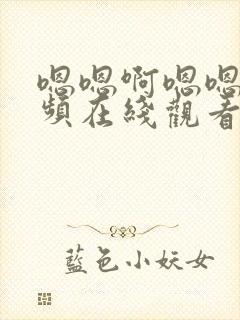 嗯嗯啊嗯嗯
頻在綫觀看
藍色小妖女